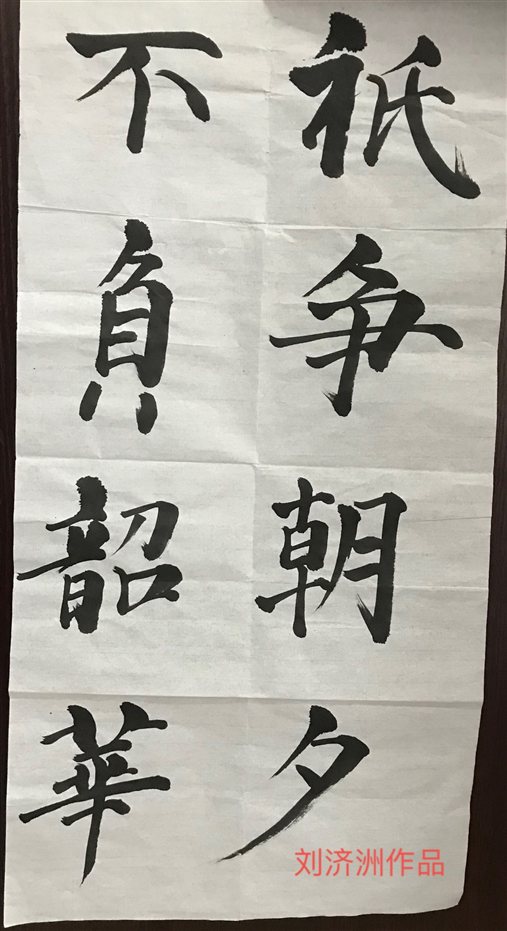 祇争朝夕
不負韶華
刘济洲作品